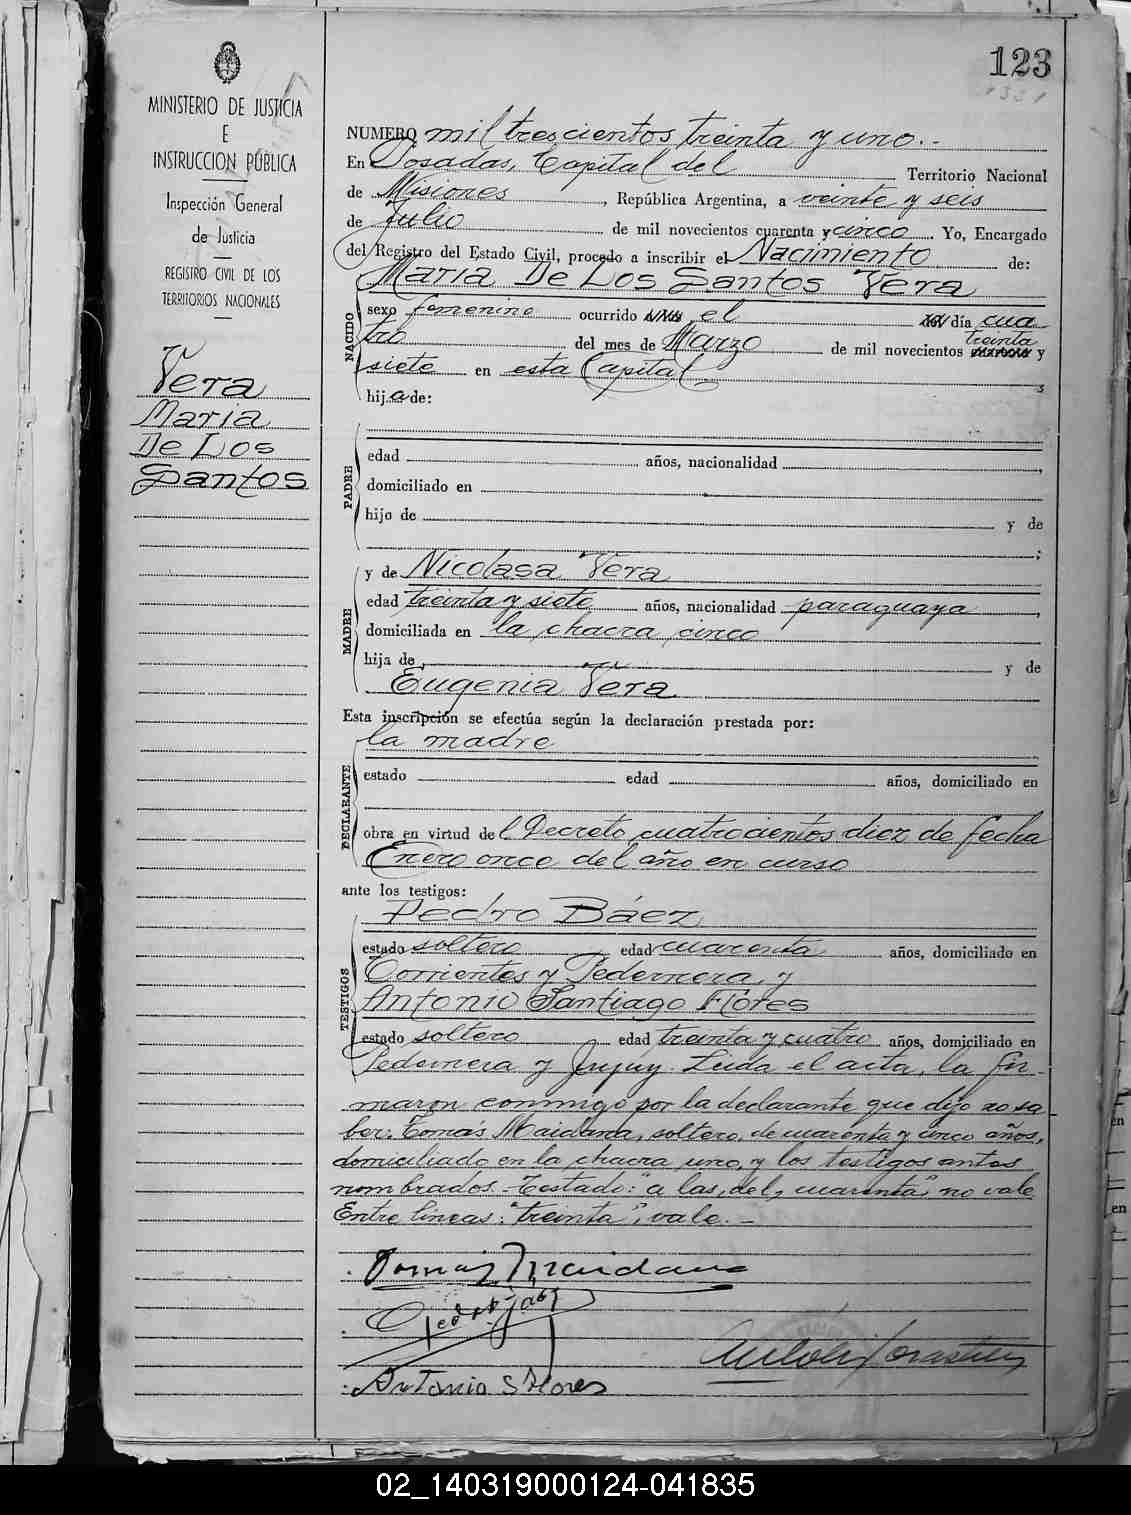 123
1331
MINISTERIO DE JUSTICIA
E
INSTRUCCION PÚBLICA
Inspección General
de Justicia
REGISTRO CIVIL DE LOS
TERRITORIOS NACIONALES
Vera
Maria
De Los
Santos
NUMERO mil trescientos treinta y uno.-
En Posadas, Capital del Territorio Nacional
de Misiones, República Argentina, a veinte y seis
de Julio de mil novecientos cuarenta y cinco. Yo, Encargado
del Registro del Estado Civil, procedo a inscribir el Nacimiento de:
Maria De Los Santos Vera
NACIDO
sexo femenino ocurrido a las el del día cua
tro del mes de Marzo de mil novecientos cuarenta treinta y
siete en esta Capital ;
hija de:
PADRE
edad años, nacionalidad ,
domiciliado en
hijo de y de
;
MADRE
y de Nicolasa Vera
edad treinta y siete años, nacionalidad paraguaya ,
domiciliada en la chacra cinco
hija de y de
Eugenia Vera
Esta inscripción se efectúa según la declaración prestada por:
DECLARANTE
la madre
estado edad años, domiciliado en
obra en virtud del Decreto cuatrocientos diez de fecha
Enero once del año en curso
ante los testigos:
TESTIGOS
Pedro Báez
estado soltero edad cuarenta años, domiciliado en
Corrientes y Pedernera, y
Antonio Santiago Flores
estado soltero edad treinta y cuatro años, domiciliado en
Pedernera y Jujuy. Leida el acta, la fir-
maron conmigo por la declarante que dijo no sa
ber: Tomás Maidana, soltero, de cuarenta y cinco años,
domiciliado en la chacra uno, y los testigos antes
nombrados.-Testado: "a las, del, cuarenta", no vale
Entre lineas: "treinta", vale.-
Tomas Maidana
Pedro Baez
Antonio S Flores
02_140319000124-041835